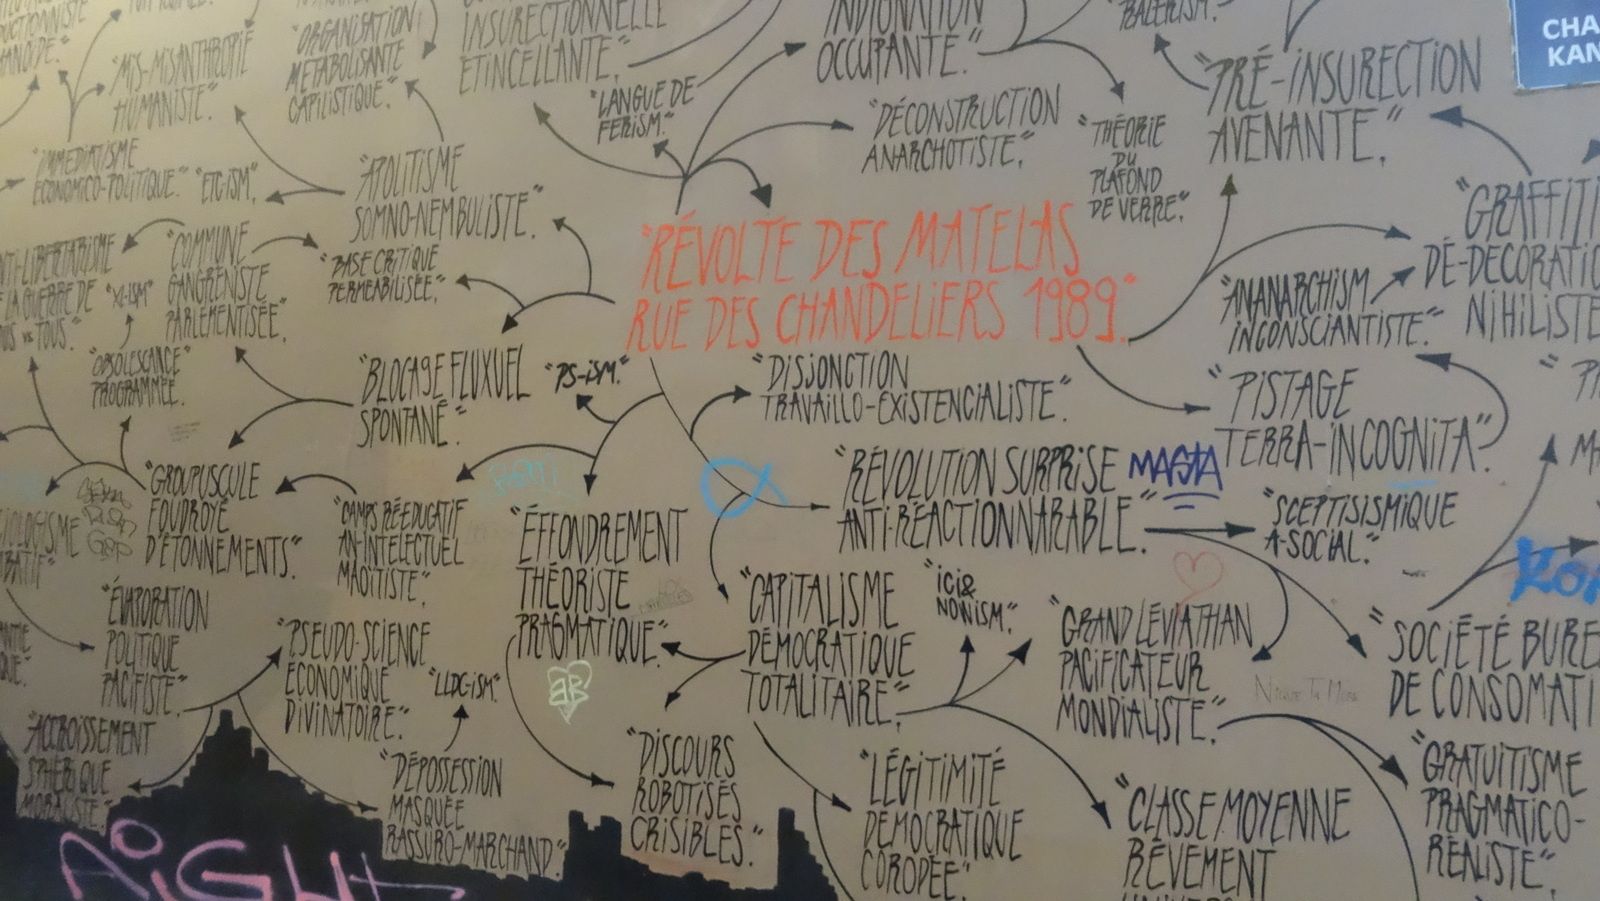 INSURECTIONNELLE
ETINCELLANTE."
INDIGNATION
OCCUPANTE."
CHA
KAN
"MIS-MISANTHROPIE
HUMANISTE."
"ORGANISATION
METABOLISANTE
CAPILISTIQUE."
"LANGUE DE
FERISM."
"PRÉ-INSURECTION
AVENANTE".
"DÉCONSTRUCTION
ANARCHOTISTE".
"THÉORIE
DU
PLAFOND
DE VERRE".
"IMMEDIATISME
ECONOMICO-POLITIQUE."
"ETC-ISM".
"APOLITISME
SOMNO-NEMBULISTE".
"RÉVOLTE DES MATELAS
RUE DES CHANDELIERS 1989".
"GRAFFITI
DÉ-DECORATI
NIHILISTE
NTI-LIBERTARISME
LA GUERRE DE
VS TOUS."
"XL-ISM"
"COMMUNE
GANGRÉNISTE
PARLEMENTISÉE".
"BASE CRITIQUE
PERMEABILISÉE".
"ANANARCHISM
INCONSCIANTISTE".
"OBSOLESCANCE
PROGRAMMÉE.
"BLOCAGE FLUXUEL
SPONTANÉ".
"PS-ISM."
"DISJONCTION
TRAVAILLO-EXISTENCIALISTE".
"PISTAGE
TERRA-INCOGNITA".
"GROUPUSCULE
FOUDROYÉ
D'ÉTONNEMENTS".
"CAMPS RÉÉDUCATIF
AN-INTELECTUEL
MAOÏTISTE".
"ÉFFONDREMENT
THÉORISTE
PRAGMATIQUE".
"RÉVOLUTION SURPRISE
ANTI-RÉACTIONNARABLE".
MASTA
"SCEPTISISMIQUE
A-SOCIAL."
"ÉVAPORATION
POLITIQUE
PACIFISTE".
"PSEUDO-SCIENCE
ÉCONOMIQUE
DIVINATOIRE".
"LLDC-ISM".
"CAPITALISME
DÉMOCRATIQUE
TOTALITAIRE".
"ICI &
NOWISM".
"GRAND LÉVIATHAN
PACIFICATEUR
MONDIALISTE".
"SOCIÉTÉ BURE
DE CONSOMATI
"ACCROISSEMENT
SPHÉRIQUE
MORALISTE".
"DÉPOSSESSION
MASQUÉE
RASSURO-MARCHAND".
"DISCOURS
ROBOTISÉS
CRISIBLES".
"LÉGITIMITÉ
DÉMOCRATIQUE
COROPÉE".
"CLASSE MOYENNE
RÊVEMENT
"GRATUITISME
PRAGMATICO-
RÉNLISTE".
AIGHT